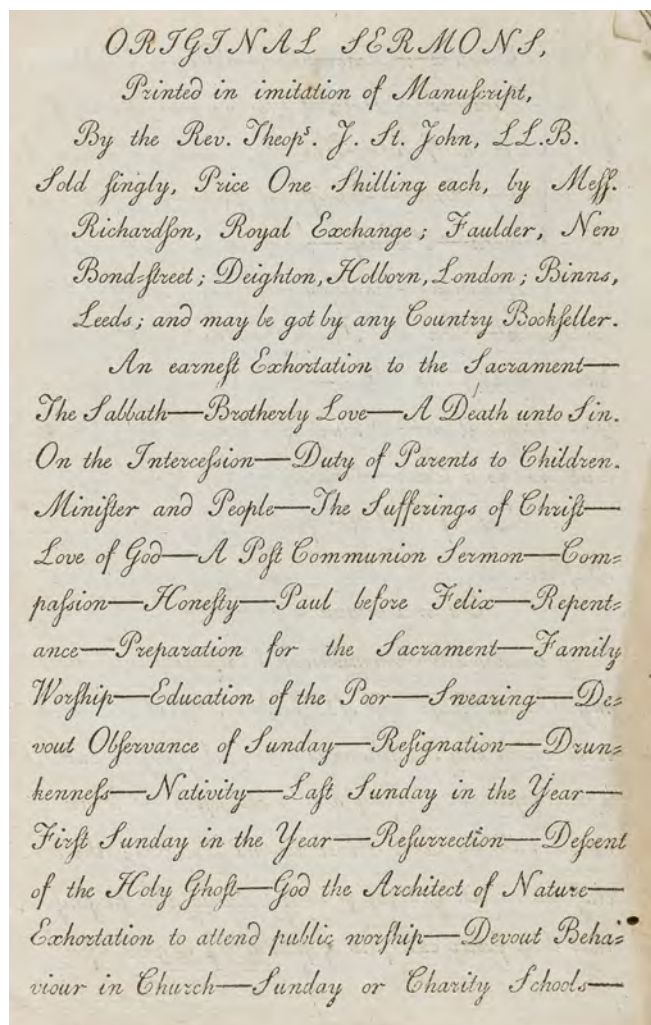 ORIGINAL SERMONS,
Printed in imitation of Manuſcript,
By the Rev. Theopˢ. J. St. John, LL.B.
Sold ſingly, Price One Shilling each, by Meſſ.
Richardſon, Royal Exchange; Faulder, New
Bond-ſtreet; Deighton, Holborn, London; Binns,
Leeds; and may be got by any Country Bookſeller.
An earneſt Exhortation to the Sacrament—
The Sabbath—Brotherly Love—A Death unto Sin.
On the Interceſsion—Duty of Parents to Children.
Miniſter and People—The Sufferings of Chriſt—
Love of God—A Poſt Communion Sermon—Com-
paſsion—Honeſty—Paul before Felix—Repent-
ance—Preparation for the Sacrament—Family
Worſhip—Education of the Poor—Swearing—De-
vout Obſervance of Sunday—Reſignation—Drun-
kenneſs—Nativity—Laſt Sunday in the Year—
Firſt Sunday in the Year—Reſurrection—Deſcent
of the Holy Ghoſt—God the Architect of Nature—
Exhortation to attend public worſhip—Devout Beha-
viour in Church—Sunday or Charity Schools—